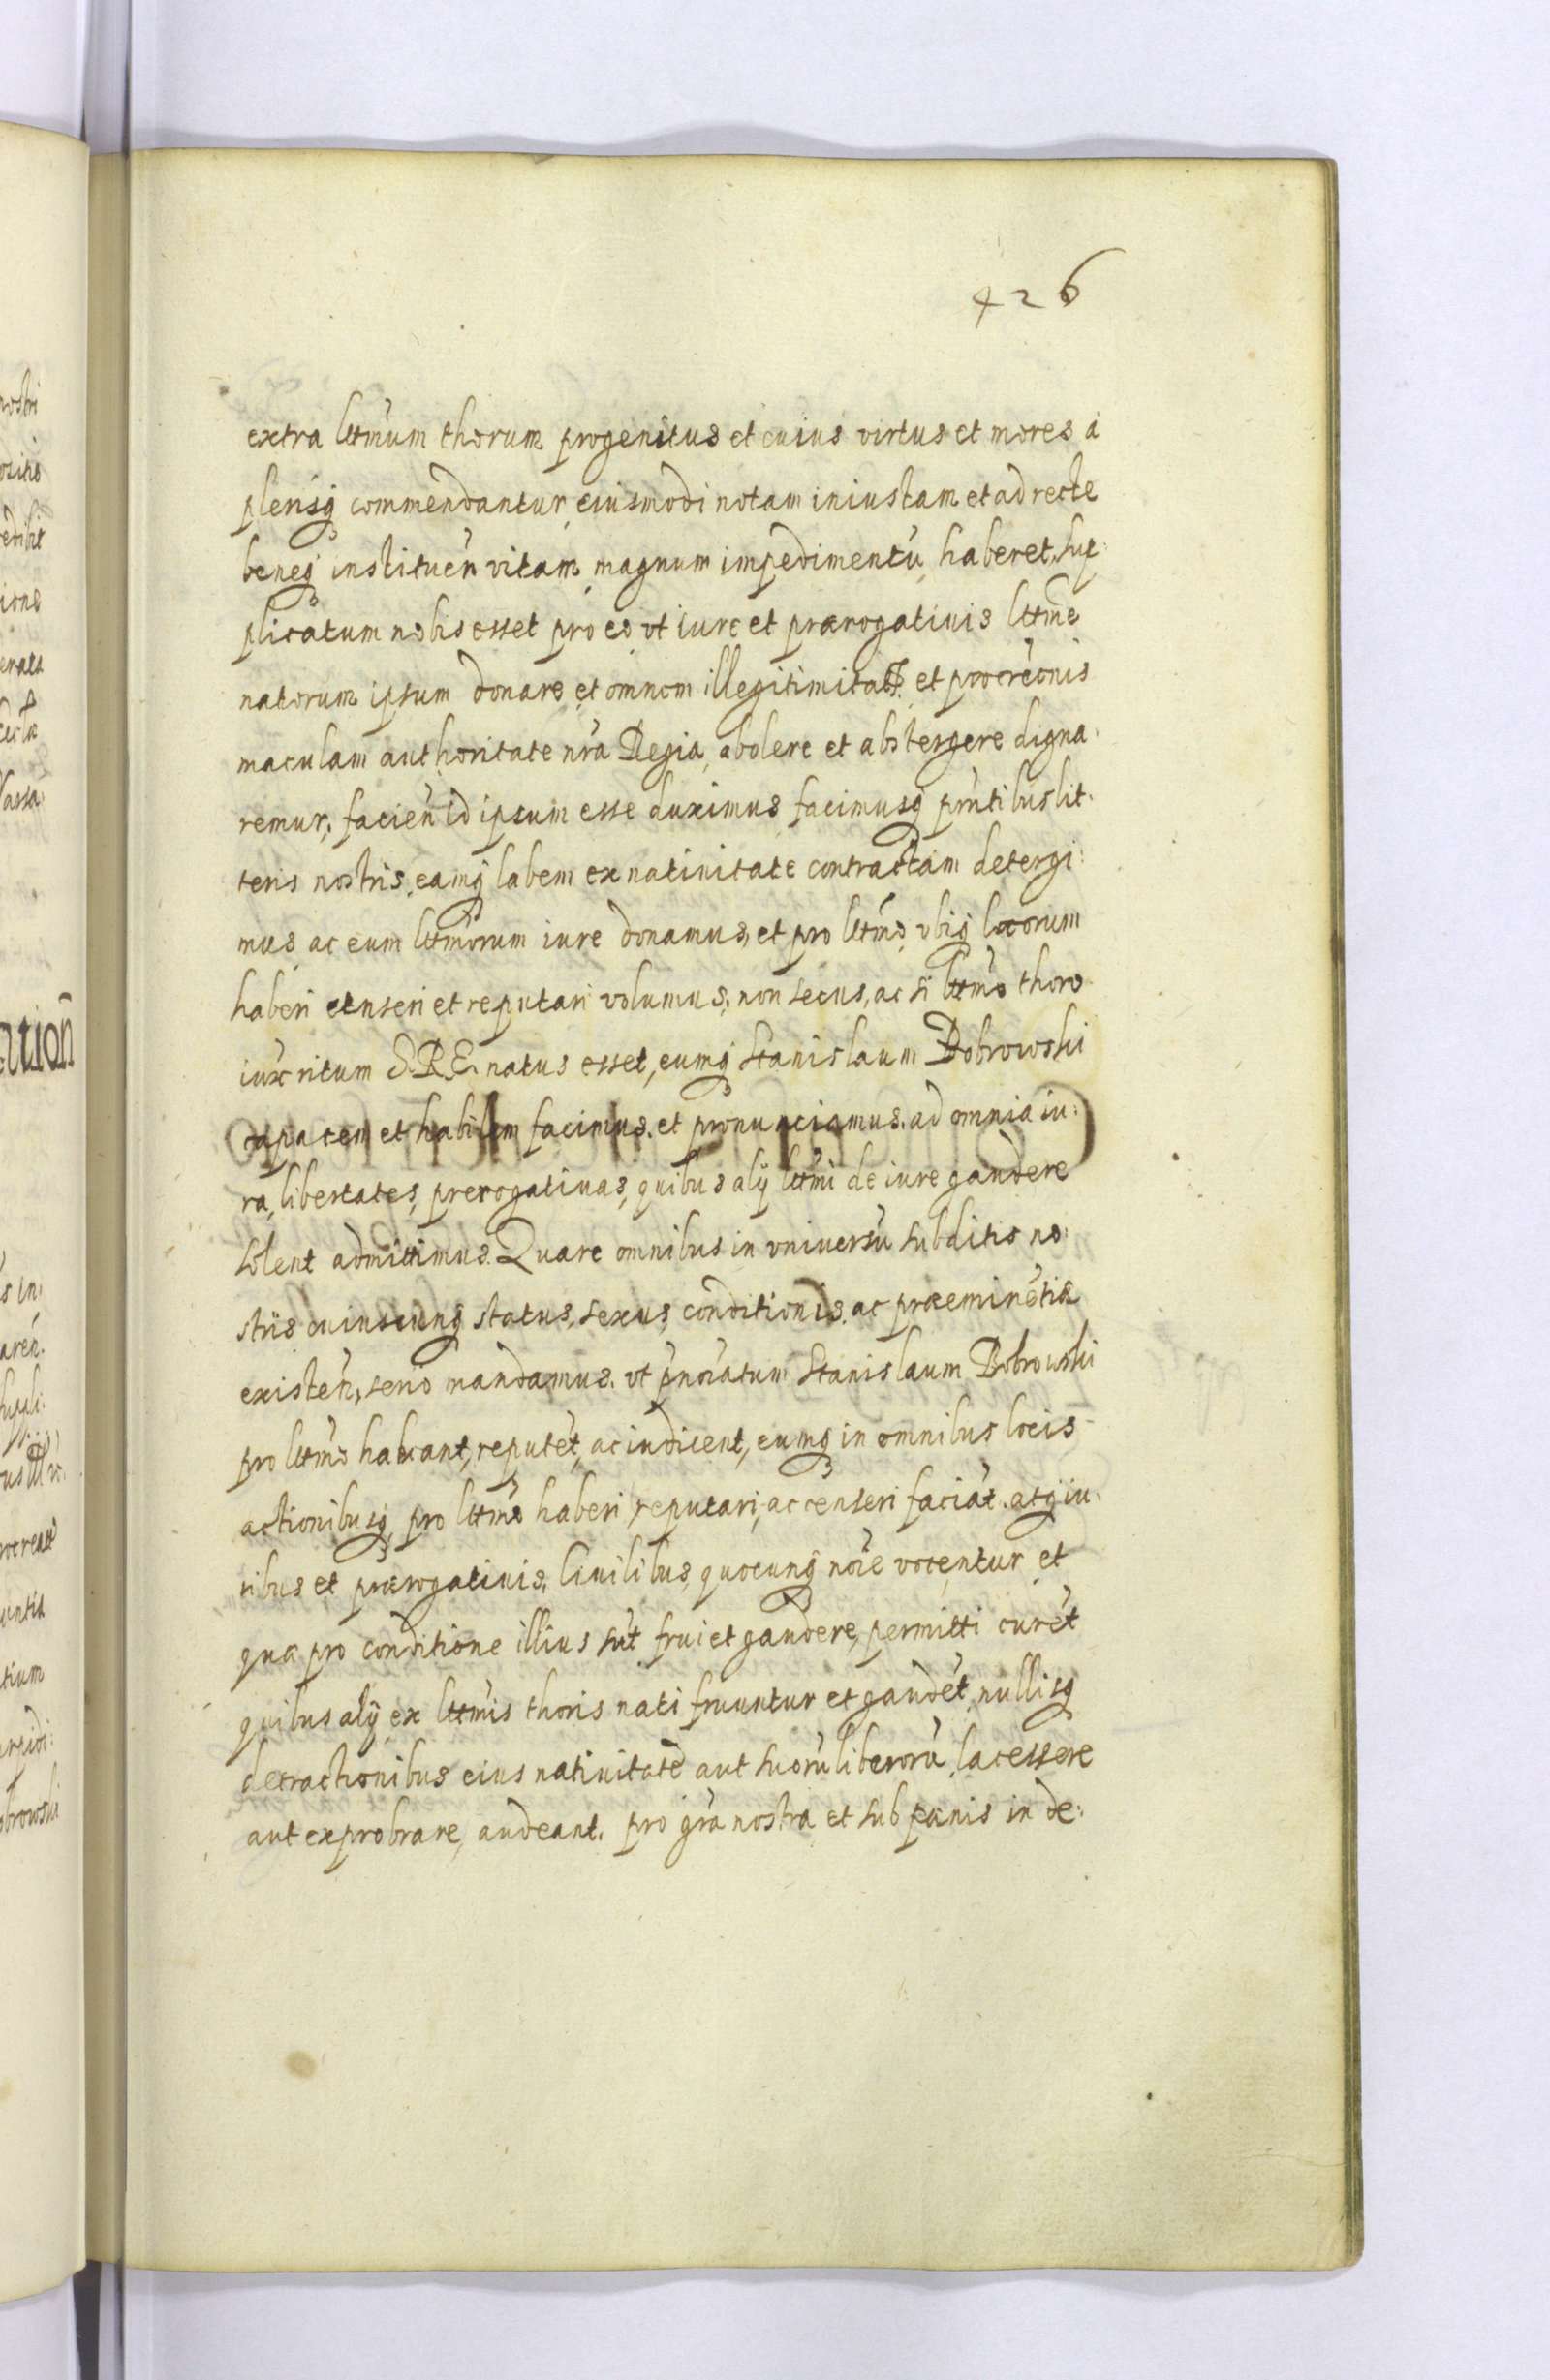 426
extra lttmum thorum progenitus et cuius virtus et mores á
plerisq commendantur, eiusmodi notam iniustam et ad recte
beneq instituen vitam magnum impedimentū haberet, sup:
plicatum nobis esset pro eo vt iure et prærogatiuis lttme
natorum ipsum donare et omnem illegitimitatis et procreonis
maculam authoritate nra Regia, abolere et abstergere digna:
remur, facien id ipsum esse duximus facimusq pntibus lit:
teris nostris, eamq labem ex natiuitate contractam detergi:
mus ac eum lttmorum iure donamus, et pro lttmo vbiq locorum
haberi censeri et reputari volumus, non secus, ac si lttmo thoro
iux ritum S.R.E. natus esset, eumq Stanislaum Dobrowski
capacem et habilem facimus et pronunciamus ad omnia iu:
ra, libertates, prerogatiuas, quibus alij lttmi de iure gaudere
solent admittimus. Quare omnibus in vniuersū subditis no:
stris cuiuscunq status, sexus, conditionis ac præeminētiæ
existen, serio mandamus vt pnoiatum Stanislaum Dobrowski
pro lttmo habeant, reputēt, ac iudicent, eumq in omnibus locis
actionibusq pro lttmo haberi, reputari, ac censeri faciāt, atq iu:
ribus et prærogatiuis, Ciuilibus, quocunq noie vocentur et
quæ pro conditione illius sūt frui et gaudere, permitti curēt
quibus alij ex lttmis thoris nati fruuntur et gaudēt, nullisq
detractionibus eius natiuitatē aut suorū liberorū lacessere
aut exprobrare, audeant. pro gra nostra et sub pœnis in de: